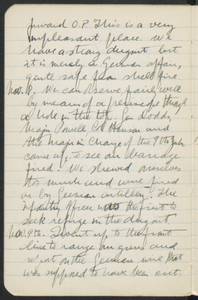 forward O.P. This is a very
unpleasant place. We
have a strong dugout but
it is merely a German affair,
quite safe from shell fire
Nov. 8. We can observe fairly well
by means of a periscope through
a hole in the top. Gen Roddy
Major Powell Col Henson and
the Major in charge of the 9th
came up to see our barrage
fired. We showed ourselves
too much and were fired
on by German artillery. The
officer was to
seek refuge in the dugout
Nov. 9th. I went up to the front
line to range our guns and
on the German wire that
was supposed to have been cut